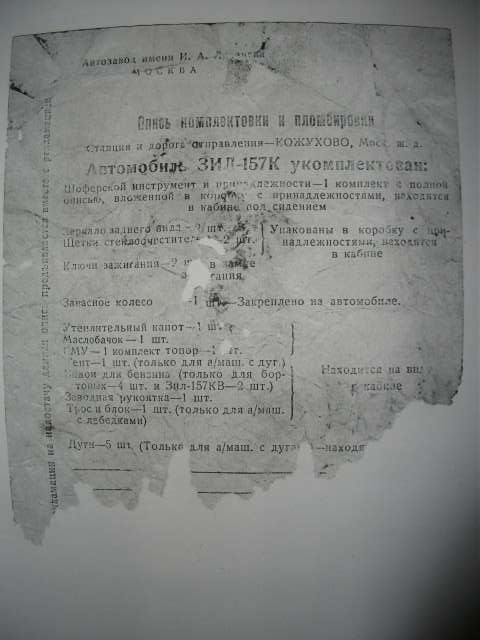 Автозавод имени И. А.
МОСКВА
Опись комплектовки и пломбировки
Станция и дорога отправления—КОЖУХОВО, Моск. ж. д.
Автомобиль ЗИЛ-157К укомплектован:
Шоферской инструмент и принадлежности—1 комплект с полной
описью, вложенной в коробку с принадлежностями, находятся
в кабине под сидением
Зеркало заднего вида—2 шт.
Щетки стеклоочистителя—2 шт.
Упакованы в коробку с при-
надлежностями, находятся
в кабине
Ключи зажигания—2 в замке
Запасное колесо —1 шт.—Закреплено на автомобиле.
Утеплительный капот—1 шт.
Маслобачок—1 шт.
1 комплект топор—1 шт.
Тент—1 шт. (только для а/маш. с дуг.)
для бензина (только для бор-
товых—4 шт. и Зил-157КВ—2 шт.)
Заводная рукоятка—1 шт.
Трос и блок—1 шт. (только для а/маш.
с лебедками)
Находится на
в кабине
Дуги—5 шт. (Только для а/маш. с —находя
на недостачу данная опись предъявляется вместе с рекламацией